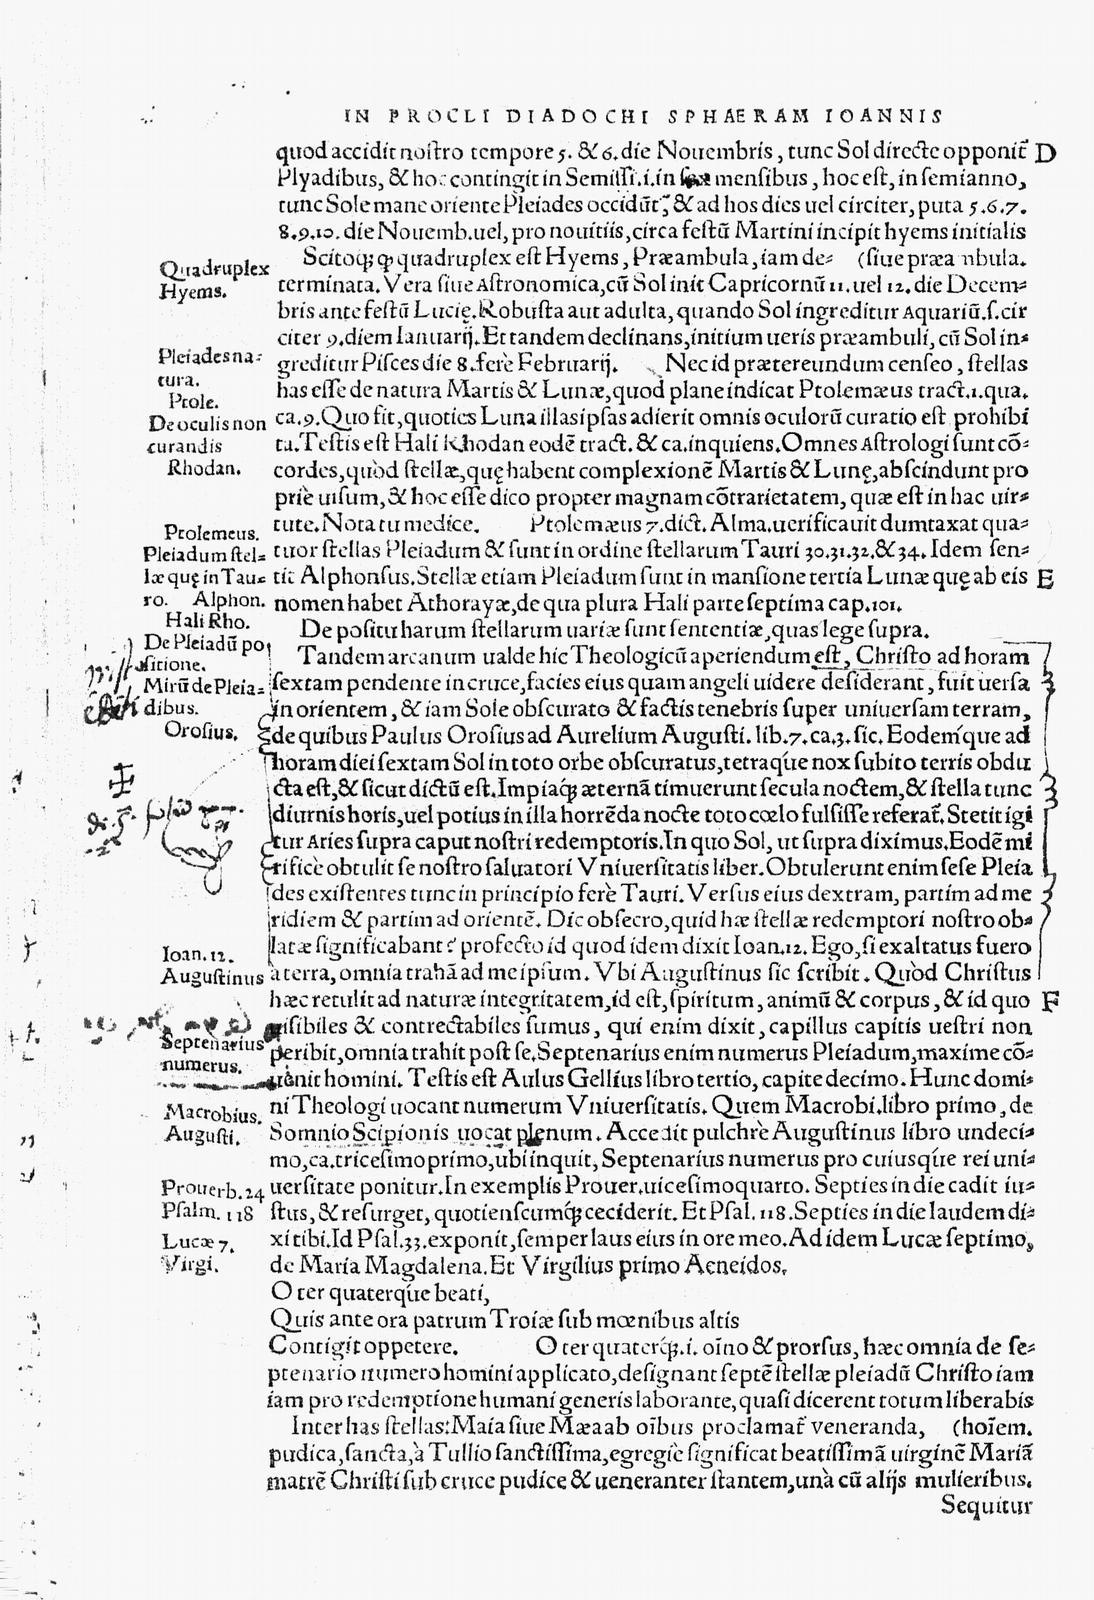 IN PROCLI DIADOCHI SPHAERAM IOANNIS
quod accidit noſtro tempore 5. & 6. die Nouembris, tunc Sol directe opponit̄ D
Plyadibus, & hoc contingit in Semiſſi.i.in ſex menſibus, hoc eſt, in ſemianno,
tunc Sole mane oriente Pleiades occidūt, & ad hos dies uel circiter, puta 5.6.7.
8.9.10. die Nouemb.uel, pro nouitiis, circa feſtū Martini incipit hyems initialis
Quadruplex
Hyems.
Scitoq; ꝙ quadruplex eſt Hyems, Præambula, iam de⸗ (ſiue præambula.
terminata. Vera ſiue Aſtronomica, cū Sol init Capricornū 11. uel 12. die Decem⸗
bris ante feſtū Lucię. Robuſta aut adulta, quando Sol ingreditur Aquariū.ſ.cir
citer 9.diem Ianuarij. Et tandem declinans, initium ueris præambuli, cū Sol in⸗
Pleiades na⸗
tura.
Ptole.
De oculis non
curandis
Rhodan.
greditur Piſces die 8.ferè Februarij. Nec id prætereundum cenſeo, ſtellas
has eſſe de natura Martis & Lunæ, quod plane indicat Ptolemæus tract.1.qua.
ca.9. Quo fit, quoties Luna illas ipſas adierit omnis oculorū curatio eſt prohibi
ta. Teſtis eſt Hali Rhodan eodē tract. & ca.inquiens. Omnes Aſtrologi ſunt cō⸗
cordes, quòd ſtellæ, quę habent complexionē Martis & Lunę, abſcindunt pro
prie uiſum, & hoc eſſe dico propter magnam cōtrarietatem, quæ eſt in hac uir⸗
Ptolemeus.
Pleiadum ſtel⸗
læ quę in Tau⸗
ro. Alphon.
Hali Rho.
tute. Nota tu medice. Ptolemæus 7.dict. Alma.uerificauit dumtaxat qua⸗
tuor ſtellas Pleiadum & ſunt in ordine ſtellarum Tauri 30.31.32.& 34. Idem ſen⸗
tit Alphonſus. Stellæ etiam Pleiadum ſunt in manſione tertia Lunæ quę ab eis E
nomen habet Athorayæ, de qua plura Hali parte ſeptima cap.101.
De Pleiadū po
ſitione.
Mirū de Pleia⸗
dibus.
Oroſius.
De poſitu harum ſtellarum uariæ ſunt ſententiæ, quas lege ſupra.
Tandem arcanum ualde hic Theologicū aperiendum eſt, Chriſto ad horam
ſextam pendente in cruce, facies eius quam angeli uidere deſiderant, fuit uerſa
in orientem, & iam Sole obſcurato & factis tenebris ſuper uniuerſam terram,
de quibus Paulus Oroſius ad Aurelium Auguſti. lib.7. ca.3. ſic. Eodeḿque ad
horam diei ſextam Sol in toto orbe obſcuratus, tetraq́ue nox ſubito terris obdu
cta eſt, & ſicut dictū eſt. Impiaq; æternā timuerunt ſecula noctem, & ſtella tunc
diurnis horis, uel potius in illa horrēda nocte toto cœlo fulſiſſe referat̄. Stetit igi
tur Aries ſupra caput noſtri redemptoris. In quo Sol, ut ſupra diximus. Eodē mi
rifice obtulit ſe noſtro ſaluatori Vniuerſitatis liber. Obtulerunt enim ſeſe Pleia
des exiſtentes tunc in principio ferè Tauri. Verſus eius dextram, partim ad me
ridiem & partim ad orientē. Dic obſecro, quid hæ ſtellæ redemptori noſtro ob⸗
Ioan.12.
Auguſtinus
latæ ſignificabant? profecto id quod idem dixit Ioan.12. Ego, ſi exaltatus fuero
à terra, omnia trahā ad me ipſum. Vbi Auguſtinus ſic ſcribit. Quòd Chriſtus
hæc retulit ad naturæ integritatem, id eſt, ſpiritum, animū & corpus, & id quo F
Septenarius
numerus.
uiſibiles & contrectabiles ſumus, qui enim dixit, capillus capitis ueſtri non
peribit, omnia trahit poſt ſe. Septenarius enim numerus Pleiadum, maxime cō⸗
uenit homini. Teſtis eſt Aulus Gellius libro tertio, capite decimo. Hunc domi⸗
Macrobius.
Auguſti.
ni Theologi uocant numerum Vniuerſitatis. Quem Macrobi.libro primo, de
Somnio Scipionis uocat plenum. Accedit pulchrè Auguſtinus libro undeci⸗
mo, ca.triceſimo primo, ubi inquit, Septenarius numerus pro cuiusq́ue rei uni⸗
Prouerb.24
Pſalm. 118
uerſitate ponitur. In exemplis Prouer.uiceſimo quarto. Septies in die cadit iu⸗
ſtus, & reſurget, quotienſcumq; ceciderit. Et Pſal. 118. Septies in die laudem di⸗
Lucæ 7.
Virgi.
xi tibi. Id Pſal.33. exponit, ſemper laus eius in ore meo. Ad idem Lucæ ſeptimo,
de Maria Magdalena. Et Virgilius primo Aeneidos,
O ter quaterq́ue beati,
Quis ante ora patrum Troiæ ſub mœnibus altis
Contigit oppetere. O ter quaterq́;.i. oīno & prorſus, hæc omnia de ſe⸗
ptenario numero homini applicato, deſignant ſeptē ſtellæ pleiadū Chriſto iam
iam pro redemptione humani generis laborante, quaſi dicerent totum liberabis
Inter has ſtellas: Maia ſiue Mæa ab oībus proclamat̄ veneranda, (hoīem.
pudica, ſancta, à Tullio ſanctiſſima, egregiè ſignificat beatiſſimā uirginē Mariā
matrē Chriſti ſub cruce pudice & ueneranter ſtantem, unà cū alijs mulieribus.
Sequitur